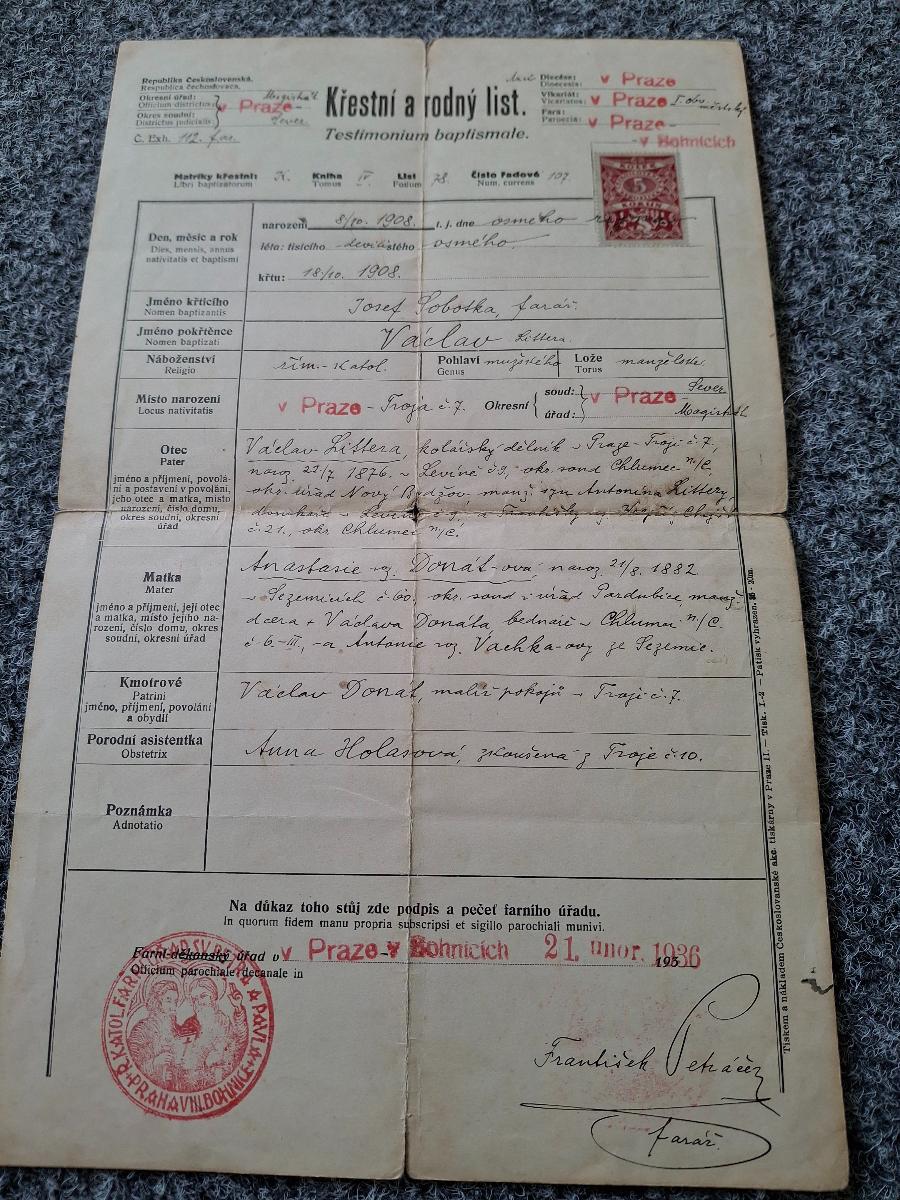 Republika Československá.
Respublica Čechoslovaca.
Okresní úřad:
Officium districtus
Okres soudní:
Districtus judicialis
v Praze-
Magistrát
Sever
Č. Exh. 112. far.
Křestní a rodný list.
Testimonium baptismale.
Diecése:
Dioecesis:
v Praze
Vikariát:
Vicariatus:
v Praze
Fara:
Paroecia:
v Praze-
-v Bohnicích
Matriky křestní:
Libri baptizatorum
K.
Kniha
Tomus
IV
List
Folium
78.
Číslo řadové
Num. currens
107.
5
Den, měsíc a rok
Dies, mensis, annus
nativitatis et baptismi
narození 8/10. 1908. t. j. dne osmého října
léta: tisícího devítistého osmého.
křtu: 18/10. 1908.
Jméno křticího
Nomen baptizantis
Josef Sobotka, farář.
Jméno pokřtěnce
Nomen baptizati
Václav Littera.
Náboženství
Religio
řím.-katol.
Pohlaví
Genus
mužského
Lože
Torus
manželské
Místo narození
Locus nativitatis
v Praze - Troja č. 7.
Okresní
soud:
úřad:
v Praze
Sever
Magistrát
Otec
Pater
jméno a příjmení, povolá-
ní a postavení v povolání,
jeho otec a matka, místo
narození, číslo domu,
okres soudní, okresní
úřad
Václav Littera, kolářský dělník v Praze-Troji č. 7,
naroz. 22/7 1876. v Levíně č 9, okr. soud Chlumec n/C.
okr. úřad Nový Bydžov, manž. syn Antonína Littery,
v Levíně č 9, a Františky roz.
č. 21., okr. Chlumec n/C.
Matka
Mater
jméno a příjmení, její otec
a matka, místo jejího na-
rození, číslo domu, okres
soudní, okresní úřad
Anastasie roz. Donát-ová, naroz. 21/8. 1882
v Sezemicích č 60. okr. soud i úřad Pardubice, manž.
dcera + Václava Donáta bednáře v Chlumci n/C.
č 6.-III., -a Antonie roz. Vachka-ovy ze Sezemic.
Kmotrové
Patrini
jméno, příjmení, povolání
a obydlí
Václav Donát, malíř pokojů v Troji č. 7.
Porodní asistentka
Obstetrix
Anna Holasová, zkoušená z Troje č. 10.
Poznámka
Adnotatio
Na důkaz toho stůj zde podpis a pečeť farního úřadu.
In quorum fidem manu propria subscripsi et sigillo parochiali munivi.
Farní-děkanský úřad v
v Praze-v Bohnicích 21. únor. 1936
193
Officium parochiale decanale in
PRAHA VIII. BOHNICE
František Petráček
farář.
Tiskem a nákladem Československé akc. tiskárny v Praze II. — Tisk. I-2 — Patisk vyhrazen.